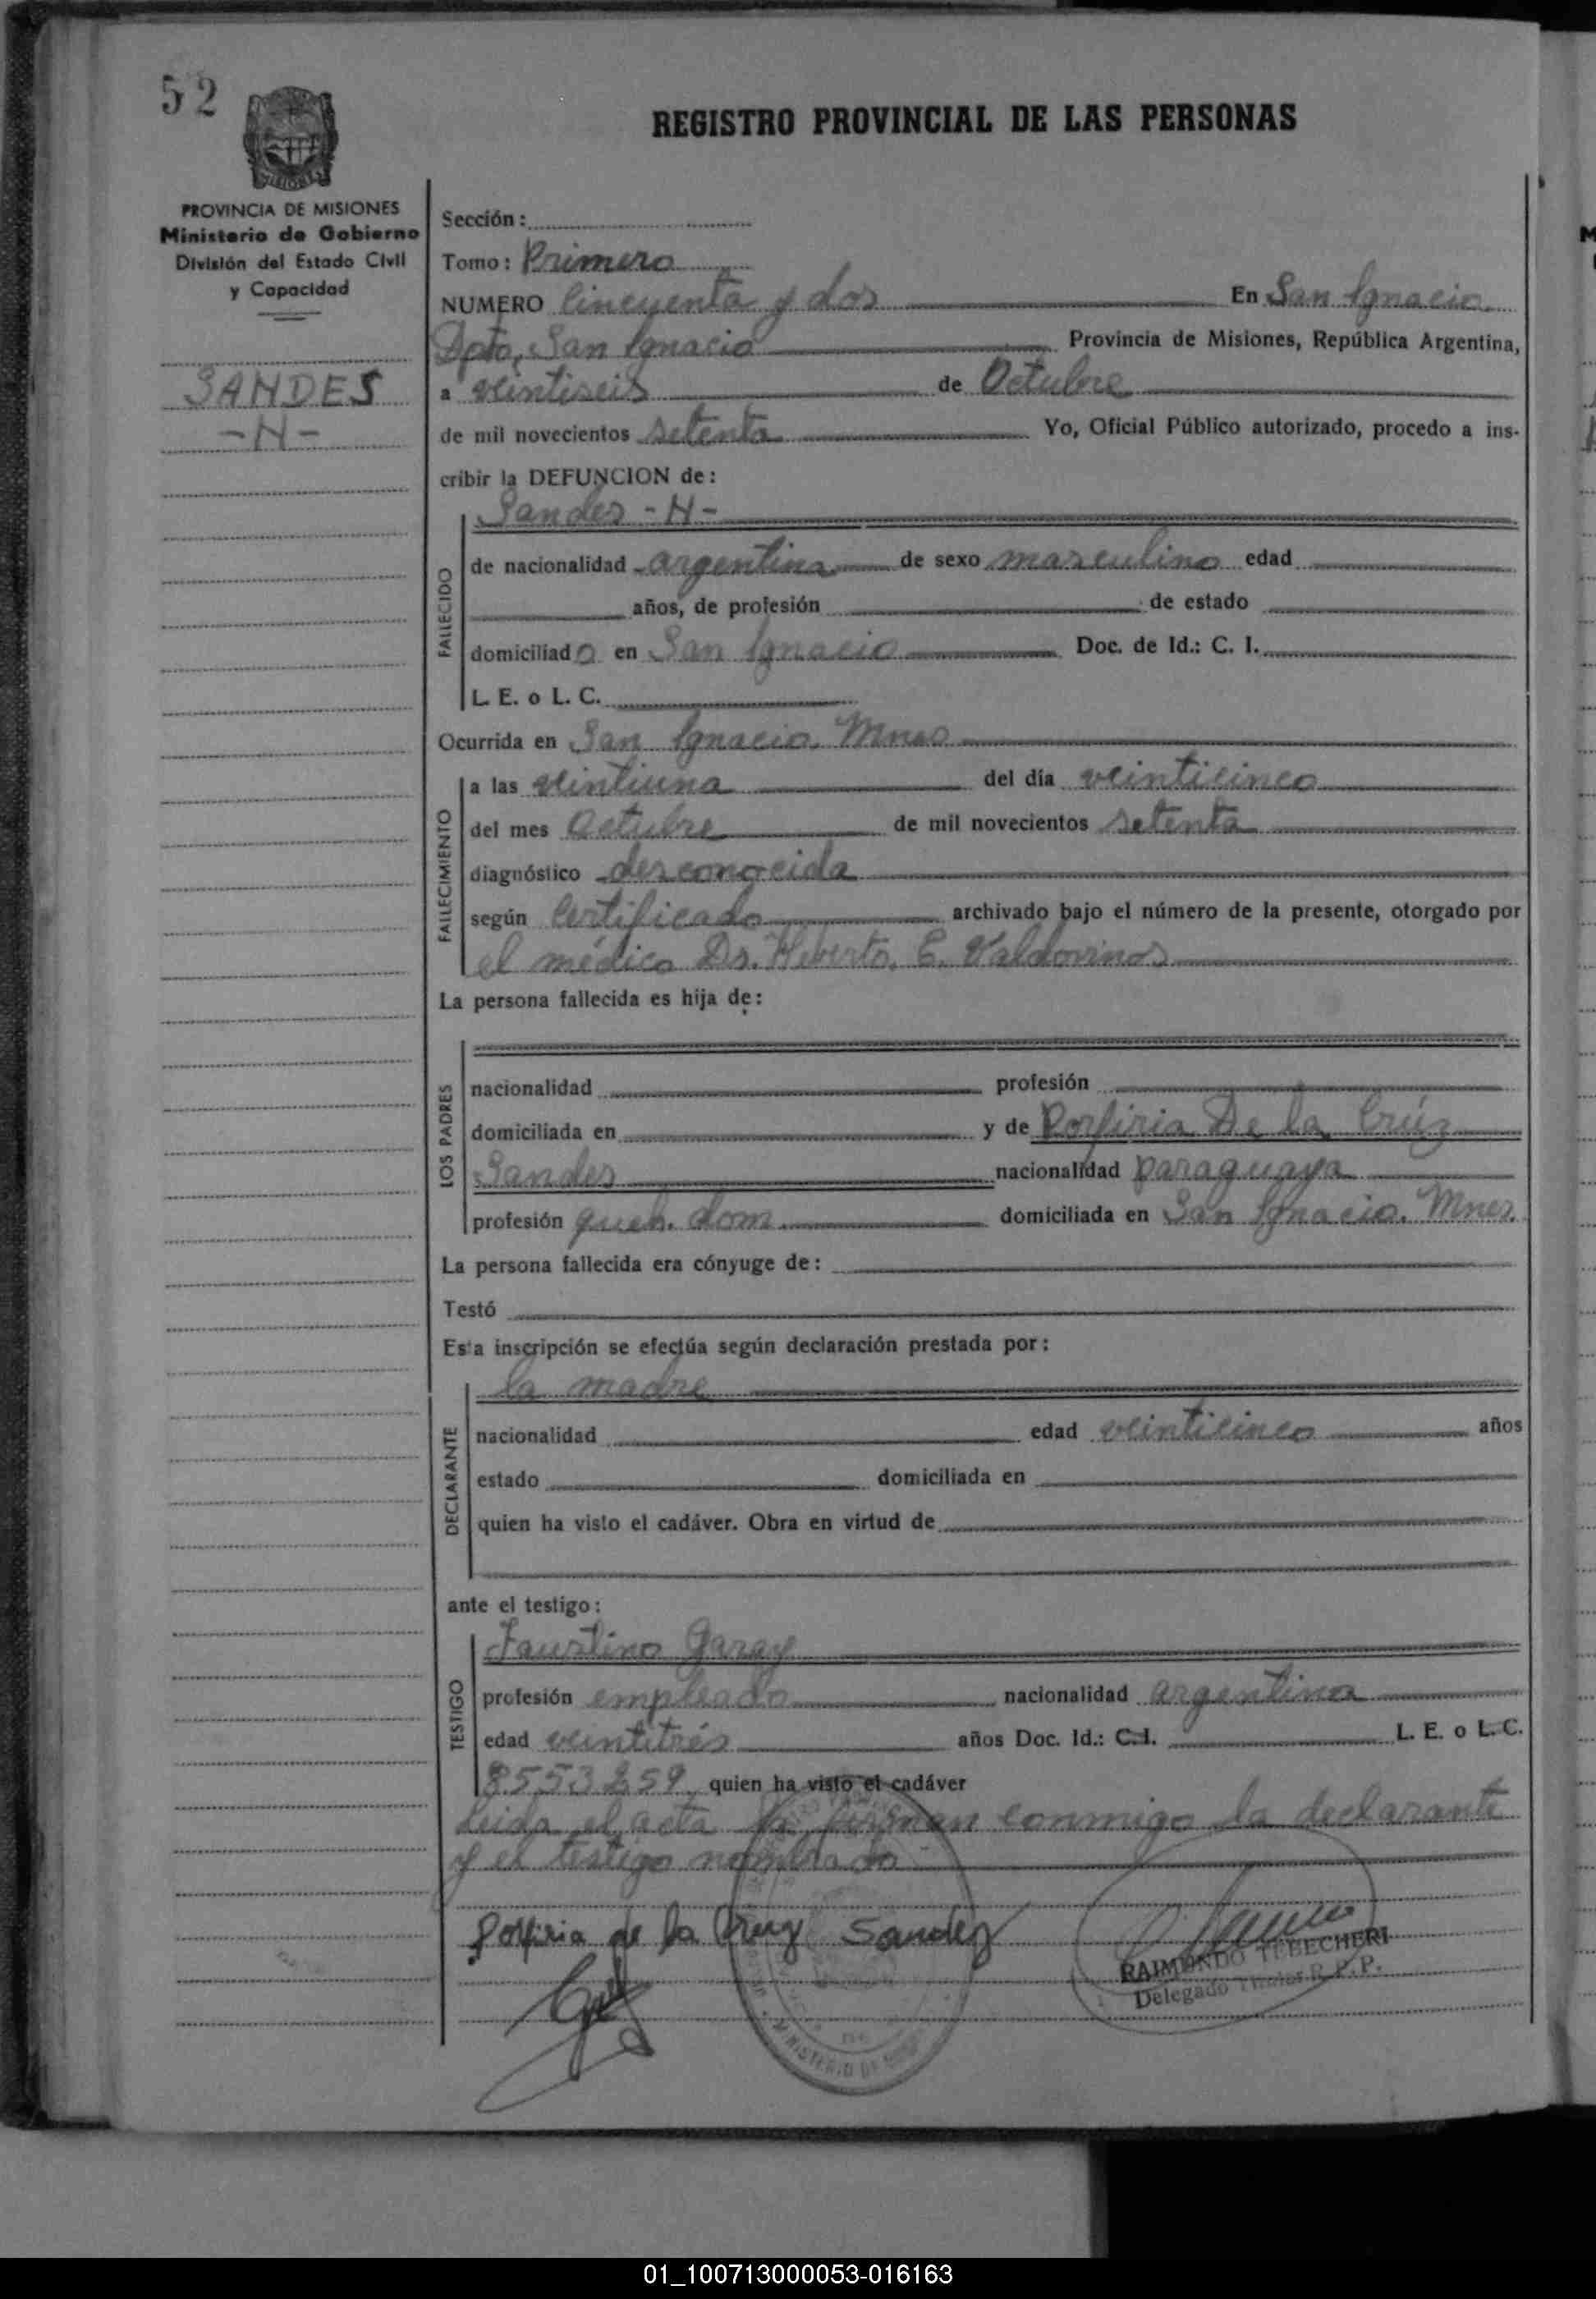 52
REGISTRO PROVINCIAL DE LAS PERSONAS
PROVINCIA DE MISIONES
Ministerio de Gobierno
División del Estado Civil
y Capacidad
SANDES
-N-
Sección:
Tomo: Primero
NUMERO Cincuenta y dos En San Ignacio
Dpto. San Ignacio Provincia de Misiones, República Argentina,
a veintiseis de Octubre
de mil novecientos setenta Yo, Oficial Público autorizado, procedo a ins-
cribir la DEFUNCION de:
Sandes -N-
FALLECIDO
de nacionalidad argentina de sexo masculino edad
años, de profesión de estado
domiciliado en San Ignacio Doc. de Id.: C. I.
L. E. o L. C.
Ocurrida en San Ignacio. Mnes
FALLECIMIENTO
a las veintiuna del día veinticinco
del mes Octubre de mil novecientos setenta
diagnóstico desconocida
según Certificado archivado bajo el número de la presente, otorgado por
el médico Dr. Heberto. E. Valdovinos
La persona fallecida es hija de:
LOS PADRES
nacionalidad profesión
domiciliada en y de Porfiria De la Crúz
Sandes nacionalidad paraguaya
profesión queh. dom. domiciliada en San Ignacio. Mnes.
La persona fallecida era cónyuge de:
Testó
Esta inscripción se efectúa según declaración prestada por:
la madre
DECLARANTE
nacionalidad edad veinticinco años
estado domiciliada en
quien ha visto el cadáver. Obra en virtud de
ante el testigo:
Faustino Garay
TESTIGO
profesión empleado nacionalidad argentina
edad veintitrés años Doc. Id.: C.I. L. E. o L.C.
8553259 quien ha visto el cadáver
Leida el acta la firman conmigo la declarante
y el testigo nombrado
Porfiria de la Cruz Sandez
RAIMUNDO TEBECHERI
Delegado Titular R.P.P.
MINISTERIO DE
01_100713000053-016163